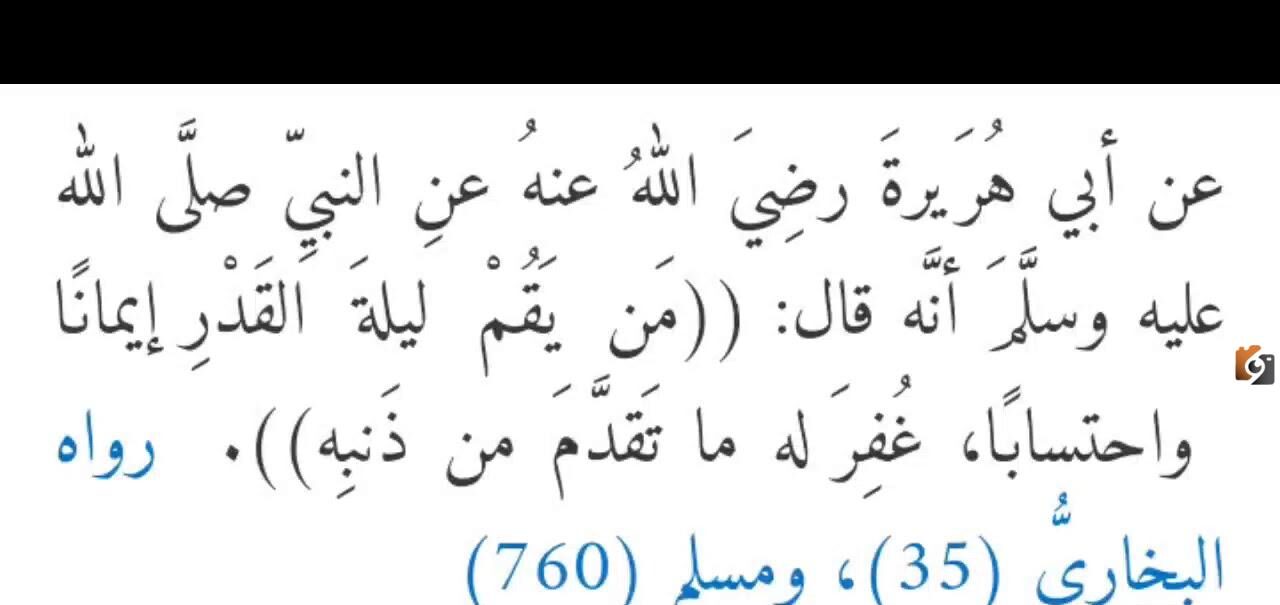 عن أبي هُرَيرةَ رضِيَ اللهُ عنهُ عنِ النبيِّ صلَّى الله
عليه وسلَّمَ أنَّه قال: ((مَن يَقُمْ ليلةَ القَدْرِ إيمانًا
واحتسابًا، غُفِرَ له ما تَقدَّمَ من ذَنبِه)). رواه
البخاريُّ (35)، ومسلم (760)